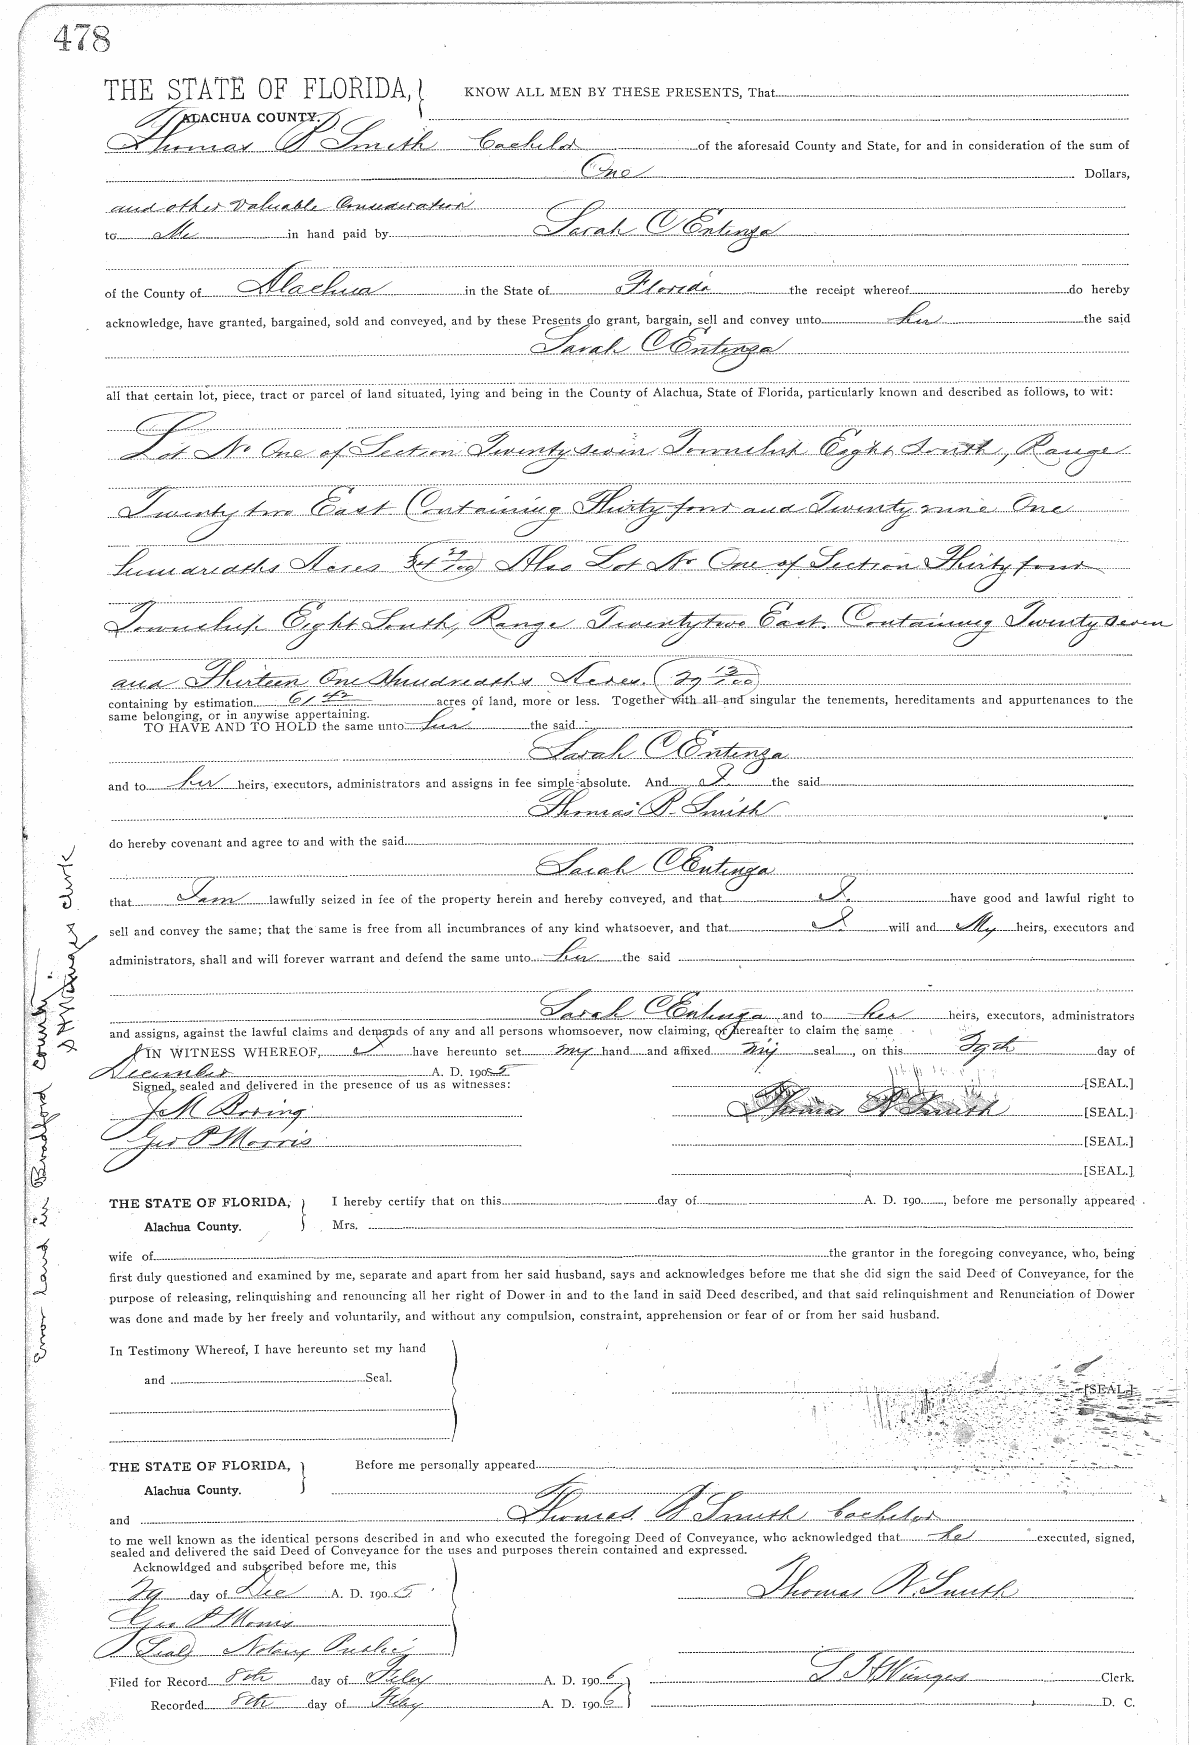 478
THE STATE OF FLORIDA, KNOW ALL MEN BY THESE PRESENTS, That
ALACHUA COUNTY.
Thomas R Smith bachelor of the aforesaid County and State, for and in consideration of the sum of
One Dollars,
and other valuable Consideration
to Me in hand paid by Sarah C Entenza
of the County of Alachua in the State of Florida the receipt whereof do hereby
acknowledge, have granted, bargained, sold and conveyed, and by these Presents do grant, bargain, sell and convey unto her the said
Sarah C Entenza
all that certain lot, piece, tract or parcel of land situated, lying and being in the County of Alachua, State of Florida, particularly known and described as follows, to wit:
Lot No One of Section Twenty seven Township Eight South, Range
Twenty two East Containing Thirty four and Twenty nine One
hundredths Acres (34 29/100) Also Lot No One of Section Thirty four
Township Eight South, Range Twenty two East. Containing Twenty seven
and Thirteen One Hundredths Acres. (27 13/100)
containing by estimation 61 42 acres of land, more or less. Together with all and singular the tenements, hereditaments and appurtenances to the
same belonging, or in anywise appertaining.
TO HAVE AND TO HOLD the same unto her the said
Sarah C Entenza
and to her heirs, executors, administrators and assigns in fee simple absolute. And I the said
Thomas R. Smith
do hereby covenant and agree to and with the said
Sarah C Entenza
that I am lawfully seized in fee of the property herein and hereby conveyed, and that I have good and lawful right to
sell and convey the same; that the same is free from all incumbrances of any kind whatsoever, and that I will and My heirs, executors and
administrators, shall and will forever warrant and defend the same unto her the said
Sarah C Entenza and to her heirs, executors, administrators
and assigns, against the lawful claims and demands of any and all persons whomsoever, now claiming, or hereafter to claim the same
IN WITNESS WHEREOF, I have hereunto set my hand and affixed my seal, on this 29th day of
December A. D. 1905
Signed, sealed and delivered in the presence of us as witnesses: [SEAL.]
J M Boring Thomas R Smith [SEAL.]
Geo P Morris [SEAL.]
[SEAL.]
THE STATE OF FLORIDA, I hereby certify that on this day of A. D. 190, before me personally appeared
Alachua County. Mrs.
wife of the grantor in the foregoing conveyance, who, being
first duly questioned and examined by me, separate and apart from her said husband, says and acknowledges before me that she did sign the said Deed of Conveyance, for the
purpose of releasing, relinquishing and renouncing all her right of Dower in and to the land in said Deed described, and that said relinquishment and Renunciation of Dower
was done and made by her freely and voluntarily, and without any compulsion, constraint, apprehension or fear of or from her said husband.
In Testimony Whereof, I have hereunto set my hand
and Seal.
[SEAL.]
THE STATE OF FLORIDA, Before me personally appeared
Alachua County.
and Thomas R Smith bachelor
to me well known as the identical persons described in and who executed the foregoing Deed of Conveyance, who acknowledged that he executed, signed,
sealed and delivered the said Deed of Conveyance for the uses and purposes therein contained and expressed.
Acknowldged and subscribed before me, this
29 day of Dec A. D. 1905 Thomas R. Smith
Geo P Morris
(Seal) Notary Public
Filed for Record 8th day of Feby A. D. 1906 S H Wienges Clerk.
Recorded 8th day of Feby A. D. 1906 D. C.
Error land in Bradford County
S H Wienges Clerk